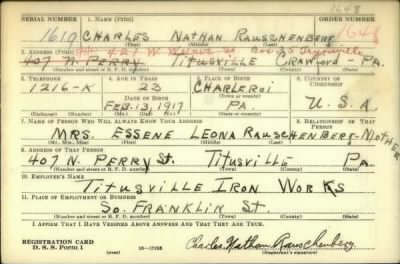 1648
SERIAL NUMBER 1. NAME (Print) ORDER NUMBER
1610 CHARLES NATHAN RAUSCHENBERG 1648
(First) (Middle) (Last)
2. ADDRESS (Print) 421 W. Walnut St. Box 35
407 N. PERRY TITUSVILLE CRAWFORD - PA.
(Number and street or R. F. D. number) (Town) (County) (State)
3. TELEPHONE 4. AGE IN YEARS 5. PLACE OF BIRTH 6. COUNTRY OF CITIZENSHIP
1216-K 23 CHARLEROI
DATE OF BIRTH (Town or county)
FEB. 13, 1917 PA. U. S. A.
(Exchange) (Number) (Mo.) (Day) (Yr.) (State or country)
7. NAME OF PERSON WHO WILL ALWAYS KNOW YOUR ADDRESS 8. RELATIONSHIP OF THAT PERSON
MRS. ESSENE LEONA RAUSCHENBERG - MOTHER
(Mr., Mrs., Miss) (First) (Middle) (Last)
9. ADDRESS OF THAT PERSON
407 N. PERRY St. TITUSVILLE PA.
(Number and street or R. F. D. number) (Town) (County) (State)
10. EMPLOYER'S NAME
TITUSVILLE IRON WORKS
11. PLACE OF EMPLOYMENT OR BUSINESS
SO. FRANKLIN ST.
(Number and street or R. F. D. number) (Town) (County) (State)
I AFFIRM THAT I HAVE VERIFIED ABOVE ANSWERS AND THAT THEY ARE TRUE.
REGISTRATION CARD Charles Nathan Rauschenberg
D. S. S. FORM 1 (over) 16-17105 (Registrant's signature)